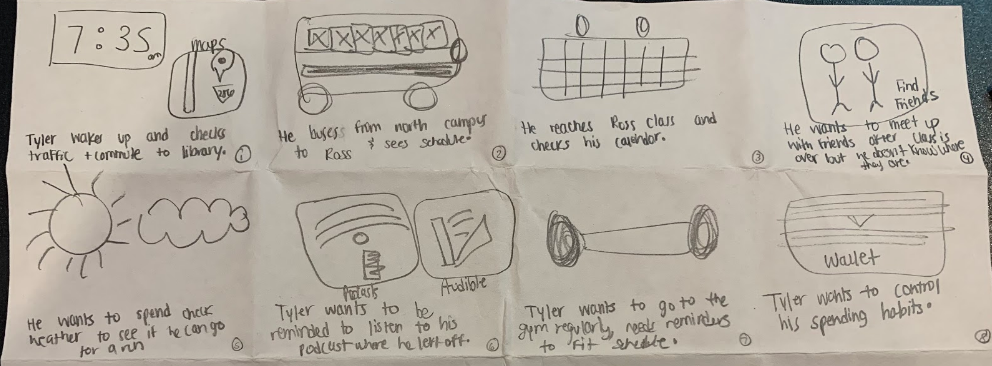 7:35 am
maps
280
Tyler wakes up and checks
traffic + commute to library. ①
He buses from north campus
to Ross & sees schedule. ②
He reaches Ross class and
checks his calendar. ③
Find
Friends
He wants to meet up
with friends after class is
over but he doesn't know where
they are. ④
He wants to spend check
weather to see if he can go
for a run ⑤
Podcasts
Audible
Tyler wants to be
reminded to listen to his
podcast where he left off. ⑥
Tyler wants to go to the
gym regularly, needs reminders
to fit schedule. ⑦
Wallet
Tyler wants to control
his spending habits. ⑧